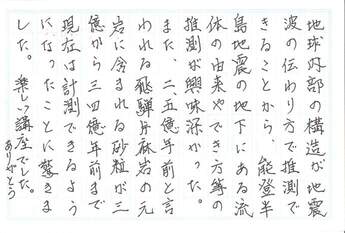 地球外部の構造が地震
波の伝わり方で推測で
きることから、能登半
島地震の地下にある流
体の由来やでき方等の
推測が興味深かった。
また、二、五億年前と言
われる飛騨片麻岩の元
岩に含まれる砂粒が三
億から三四億年前まで
現在は計測できるよう
になったことに驚きま
した。楽しい講座でした。
ありがとう